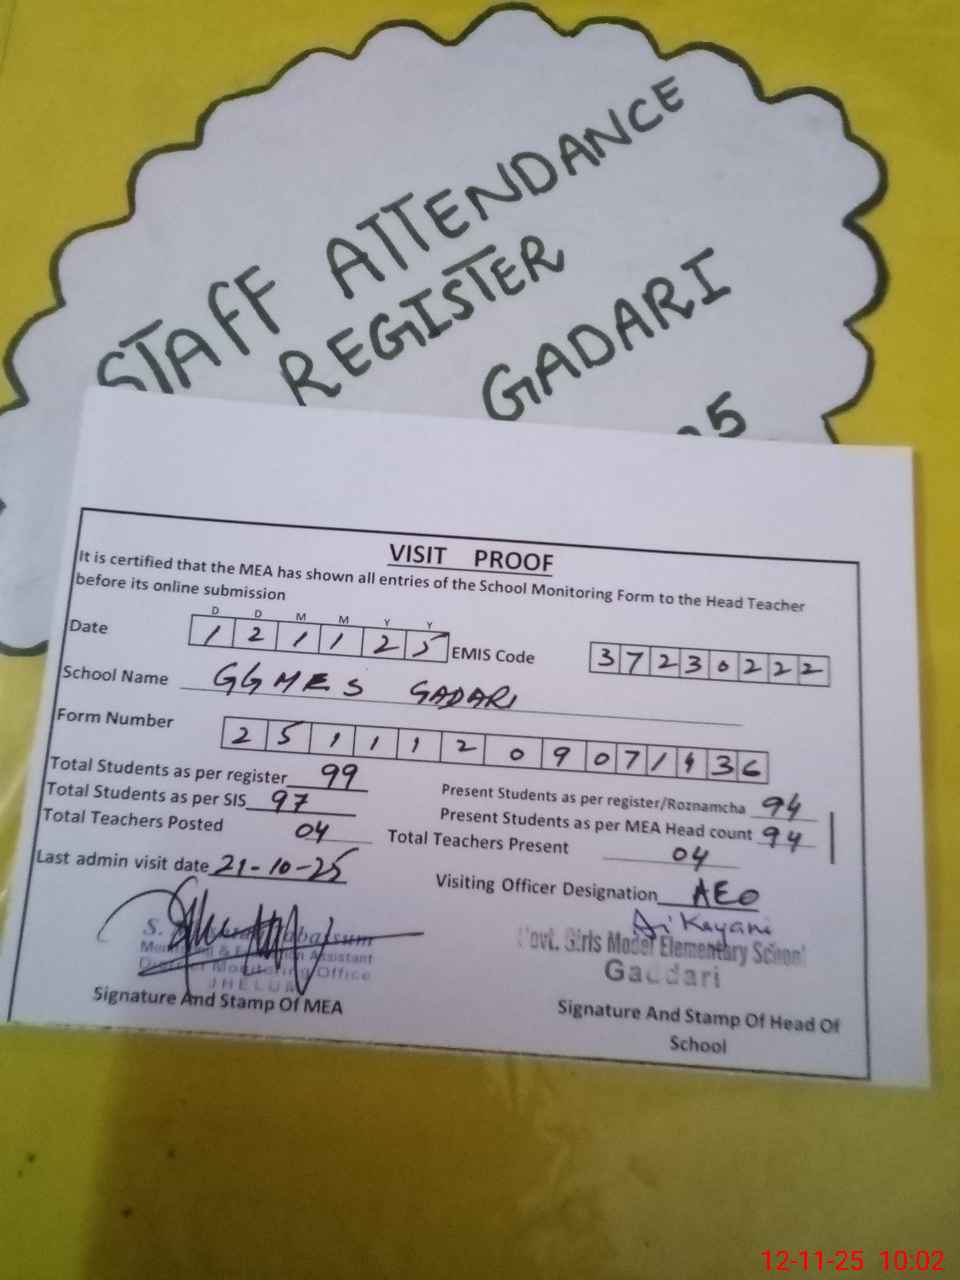 STAFF ATTENDANCE
REGISTER
GADARI
VISIT PROOF
It is certified that the MEA has shown all entries of the School Monitoring Form to the Head Teacher
before its online submission
D D M M Y Y
Date 1 2 1 1 2 5 EMIS Code 3 7 2 3 0 2 2 2
School Name GGMES GADARI
Form Number 2 5 1 1 1 2 0 9 0 7 1 4 3 6
Total Students as per register 99 Present Students as per register/Roznamcha 94
Total Students as per SIS 97 Present Students as per MEA Head count 94
Total Teachers Posted 04 Total Teachers Present 04
Last admin visit date 21-10-25 Visiting Officer Designation AEO
Govt. Girls Model Elementary School
Gaddari
Assistant
District Monitoring Office
JHELUM
Signature And Stamp Of MEA
Signature And Stamp Of Head Of
School
12-11-25 10:02